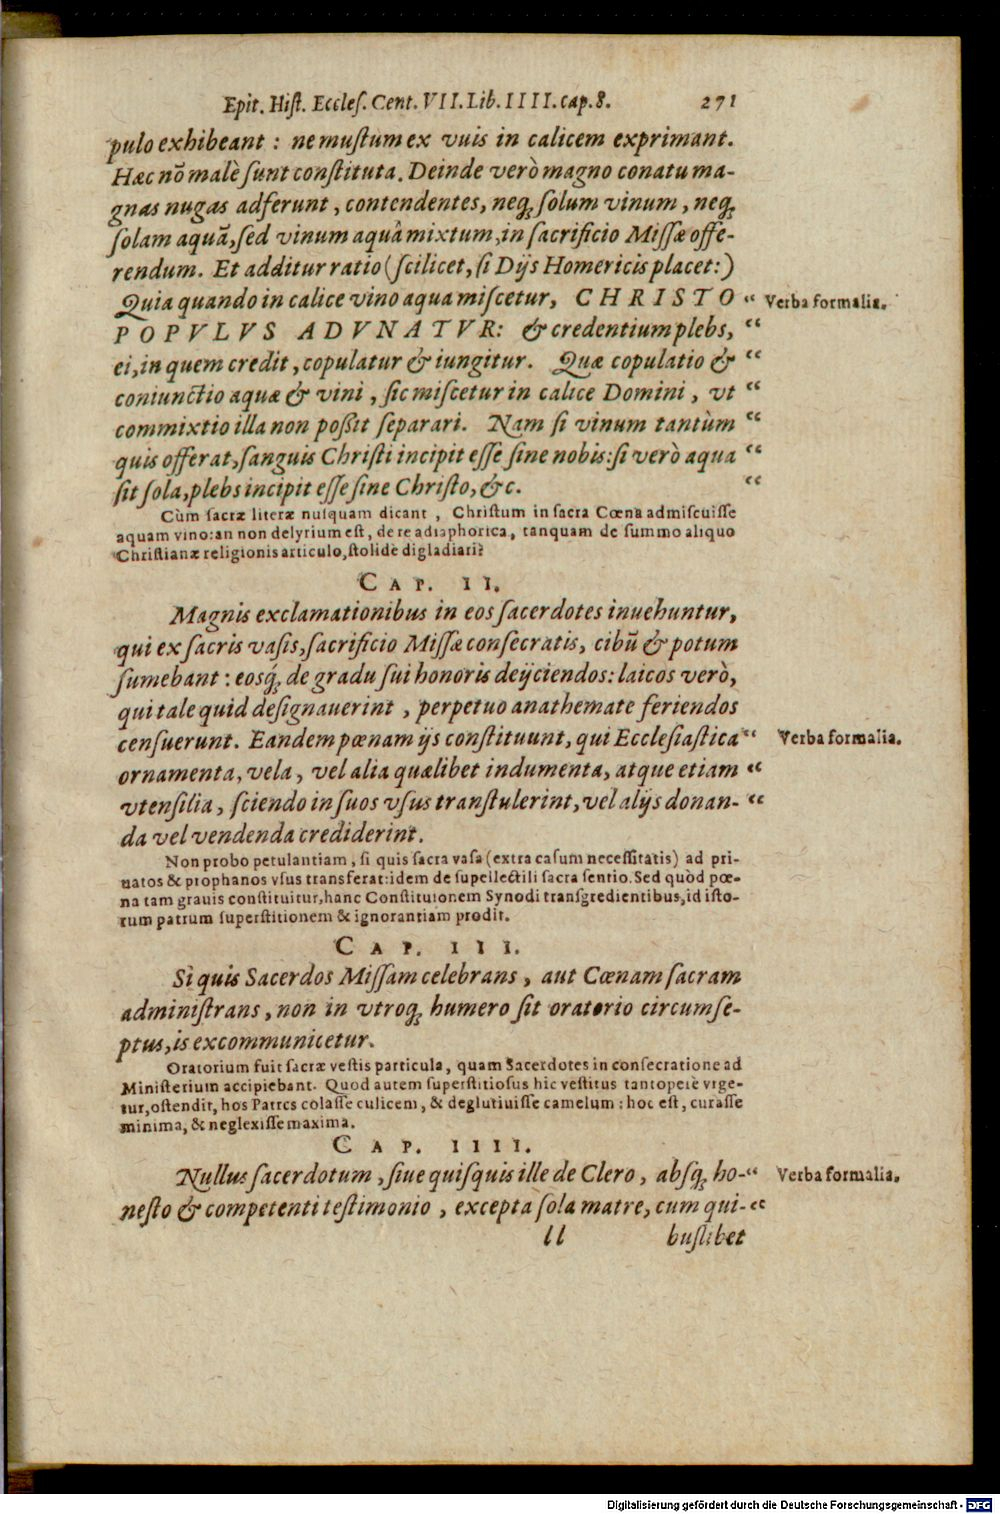 Epit. Hiſt. Eccleſ. Cent. VII. Lib. IIII. cap. 8. 271
pulo exhibeant : ne muſtum ex vuis in calicem exprimant.
Hæc nō malè ſunt conſtituta. Deinde verò magno conatu ma-
gnas nugas adferunt, contendentes, neq; ſolum vinum, neq;
ſolam aquā, ſed vinum aquâ mixtum, in ſacrificio Miſſæ offe-
rendum. Et additur ratio (ſcilicet, ſi Dijs Homericis placet:)
Quia quando in calice vino aqua miſcetur, CHRISTO “ Verba formalia.
POPVLVS ADVNATVR: & credentium plebs, “
ei, in quem credit, copulatur & iungitur. Quæ copulatio & “
coniunctio aquæ & vini, ſic miſcetur in calice Domini, vt “
commixtio illa non poßit ſeparari. Nam ſi vinum tantùm “
quis offerat, ſanguis Chriſti incipit eſſe ſine nobis: ſi verò aqua “
ſit ſola, plebs incipit eſſe ſine Chriſto, &c. “
Cùm ſacræ literæ nuſquam dicant, Chriſtum in ſacra Cœna admiſcuiſſe
aquam vino: an non delyrium eſt, de re adiaphorica, tanquam de ſummo aliquo
Chriſtianæ religionis articulo, ſtolidè digladiari?
CAP. II.
Magnis exclamationibus in eos ſacerdotes inuehuntur,
qui ex ſacris vaſis, ſacrificio Miſſæ conſecratis, cibū & potum
ſumebant : eosq́; de gradu ſui honoris deijciendos: laicos verò,
qui tale quid deſignauerint, perpetuo anathemate feriendos
cenſuerunt. Eandem pœnam ijs conſtituunt, qui Eccleſiaſtica “ Verba formalia.
ornamenta, vela, vel alia quælibet indumenta, atque etiam “
vtenſilia, ſciendo in ſuos vſus tranſtulerint, vel alijs donan- “
da vel vendenda crediderint.
Non probo petulantiam, ſi quis ſacra vaſa (extra caſum neceſſitatis) ad pri-
uatos & prophanos vſus transferat: idem de ſupellectili ſacra ſentio. Sed quòd pœ-
na tam grauis conſtituitur, hanc Conſtitutionem Synodi transgredientibus, id iſto-
rum patrum ſuperſtitionem & ignorantiam prodit.
CAP. III.
Si quis Sacerdos Miſſam celebrans, aut Cœnam ſacram
adminiſtrans, non in vtroq; humero ſit oratorio circumſe-
ptus, is excommunicetur.
Oratorium fuit ſacræ veſtis particula, quam Sacerdotes in conſecratione ad
Miniſterium accipiebant. Quod autem ſuperſtitioſus hic veſtitus tantoperè vrge-
tur, oſtendit, hos Patres colaſſe culicem, & deglutiuiſſe camelum : hoc eſt, curaſſe
minima, & neglexiſſe maxima.
CAP. IIII.
Nullus ſacerdotum, ſiue quiſquis ille de Clero, absq; ho- “ Verba formalia.
neſto & competenti teſtimonio, excepta ſola matre, cum qui- “
ll buſlibet
Digitalisierung gefördert durch die Deutsche Forschungsgemeinschaft - DFG